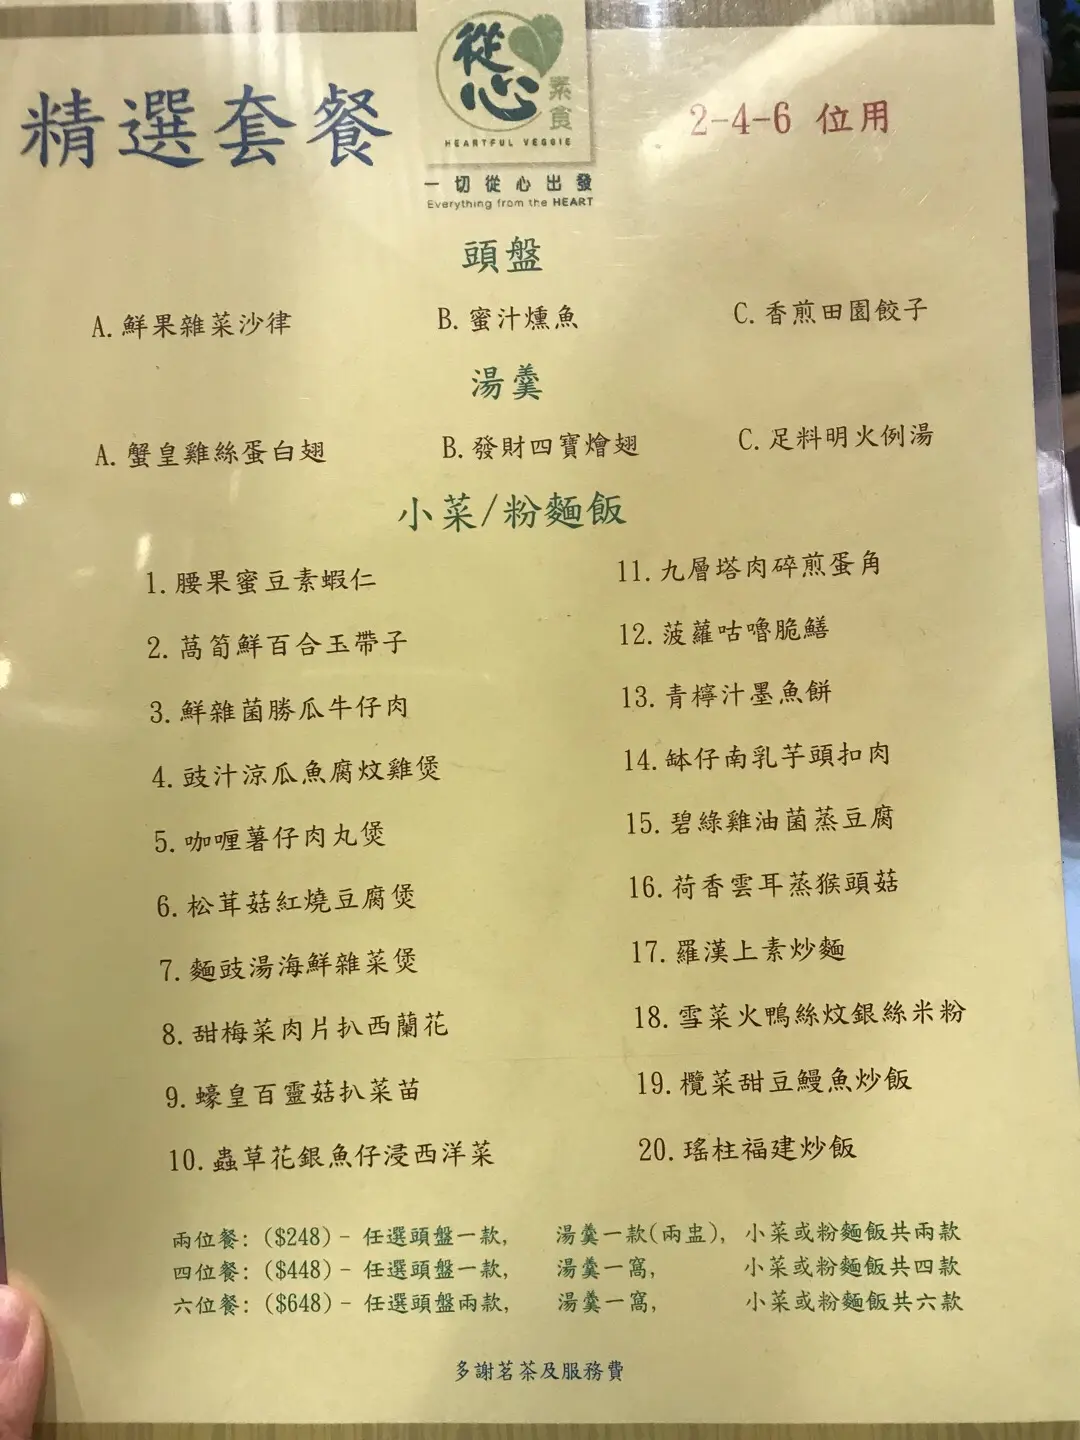 精選套餐
從心
素食
HEARTFUL VEGGIE
一切從心出發
Everything from the HEART
2-4-6 位用
頭盤
A. 鮮果雜菜沙律 B. 蜜汁燻魚 C. 香煎田園餃子
湯羹
A. 蟹皇雞絲蛋白翅 B. 發財四寶燴翅 C. 足料明火例湯
小菜/粉麵飯
1. 腰果蜜豆素蝦仁
2. 萵筍鮮百合玉帶子
3. 鮮雜菌勝瓜牛仔肉
4. 豉汁涼瓜魚腐炆雞煲
5. 咖喱薯仔肉丸煲
6. 松茸菇紅燒豆腐煲
7. 麵豉湯海鮮雜菜煲
8. 甜梅菜肉片扒西蘭花
9. 蠔皇百靈菇扒菜苗
10. 蟲草花銀魚仔浸西洋菜
11. 九層塔肉碎煎蛋角
12. 菠蘿咕嚕脆鱔
13. 青檸汁墨魚餅
14. 缽仔南乳芋頭扣肉
15. 碧綠雞油菌蒸豆腐
16. 荷香雲耳蒸猴頭菇
17. 羅漢上素炒麵
18. 雪菜火鴨絲炆銀絲米粉
19. 欖菜甜豆鰻魚炒飯
20. 瑤柱福建炒飯
兩位餐: ($248) - 任選頭盤一款, 湯羹一款(兩盅), 小菜或粉麵飯共兩款
四位餐: ($448) - 任選頭盤一款, 湯羹一窩, 小菜或粉麵飯共四款
六位餐: ($648) - 任選頭盤兩款, 湯羹一窩, 小菜或粉麵飯共六款
多謝茗茶及服務費